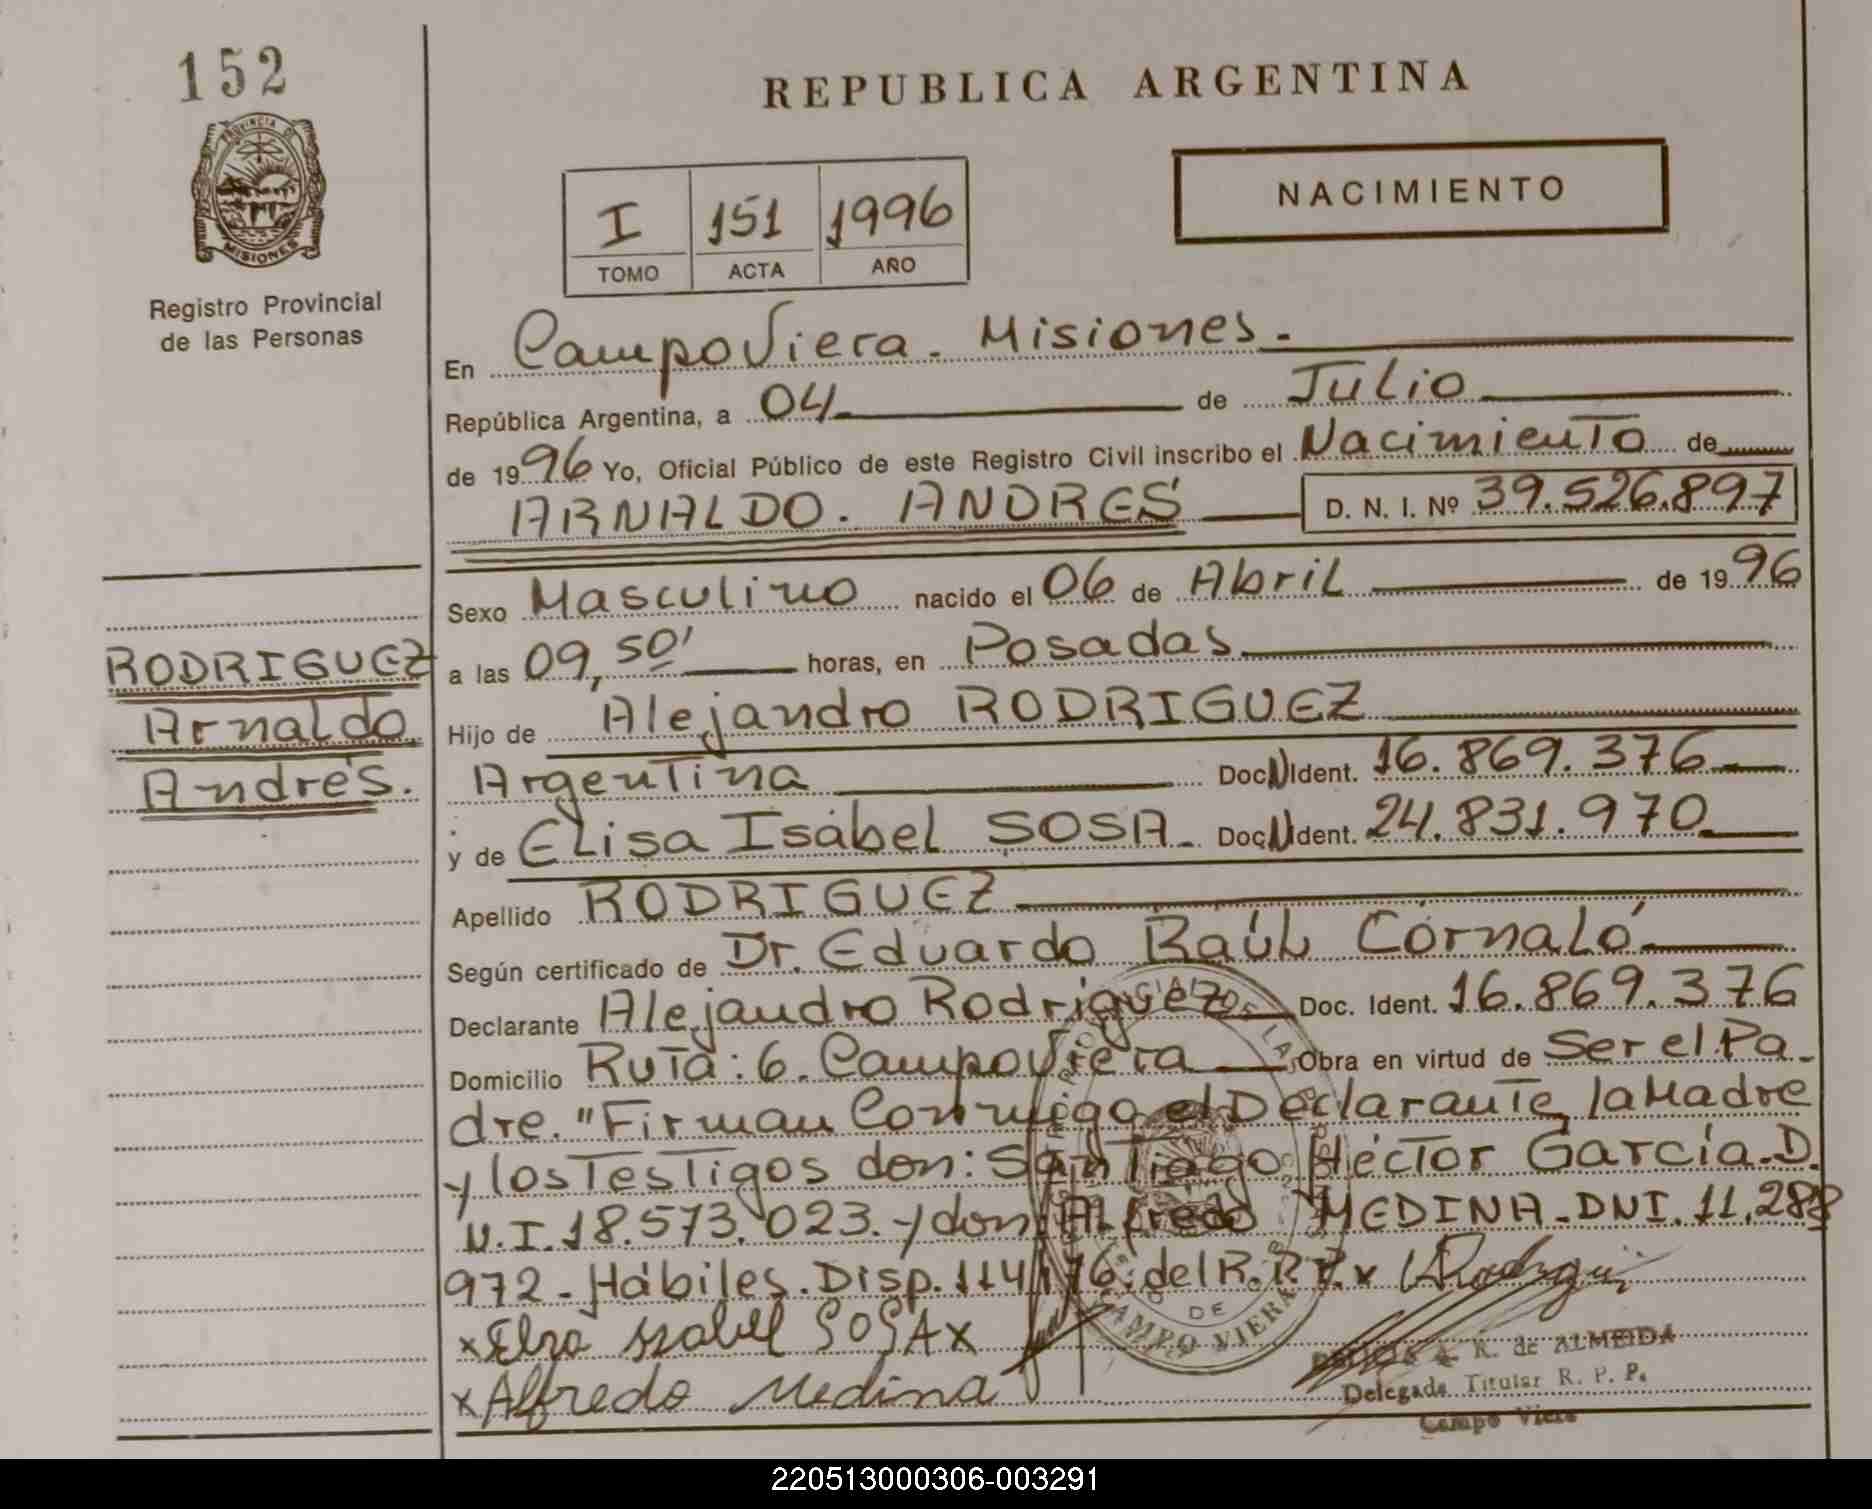 152
REPUBLICA ARGENTINA
PROVINCIA DE
MISIONES
Registro Provincial
de las Personas
I 151 1996
TOMO ACTA AÑO
NACIMIENTO
En Campo Viera - Misiones.
República Argentina, a 04 de Julio
de 1996 Yo, Oficial Público de este Registro Civil inscribo el Nacimiento de
ARNALDO. ANDRÉS D. N. I. Nº 39.526.897
Sexo Masculino nacido el 06 de Abril de 1996
a las 09,50' horas, en Posadas
RODRIGUEZ
Arnaldo
Andrés.
Hijo de Alejandro RODRIGUEZ
Argentina Doc. N. Ident. 16.869.376
y de Elisa Isabel SOSA - Doc. N. Ident. 24.831.970
Apellido RODRIGUEZ
Según certificado de Dr. Eduardo Raúl Cornaló
Declarante Alejandro Rodriguez Doc. Ident. 16.869.376
Domicilio Ruta: 6. Campo Viera Obra en virtud de Ser el Pa-
dre. "Firman Conmigo el Declarante, la Madre
y los Testigos don: Santiago Héctor García. D.
N.I. 18.573.023. y don: Alfredo MEDINA - DNI. 11.288
972 - Hábiles. Disp. 114/76. del R.R.P. x
x Elza Isabel SOSA x
x Alfredo Medina
A. R. de ALMEIDA
Delegada Titular R. P. P.
Campo Viera
CAMPO VIERA
220513000306-003291